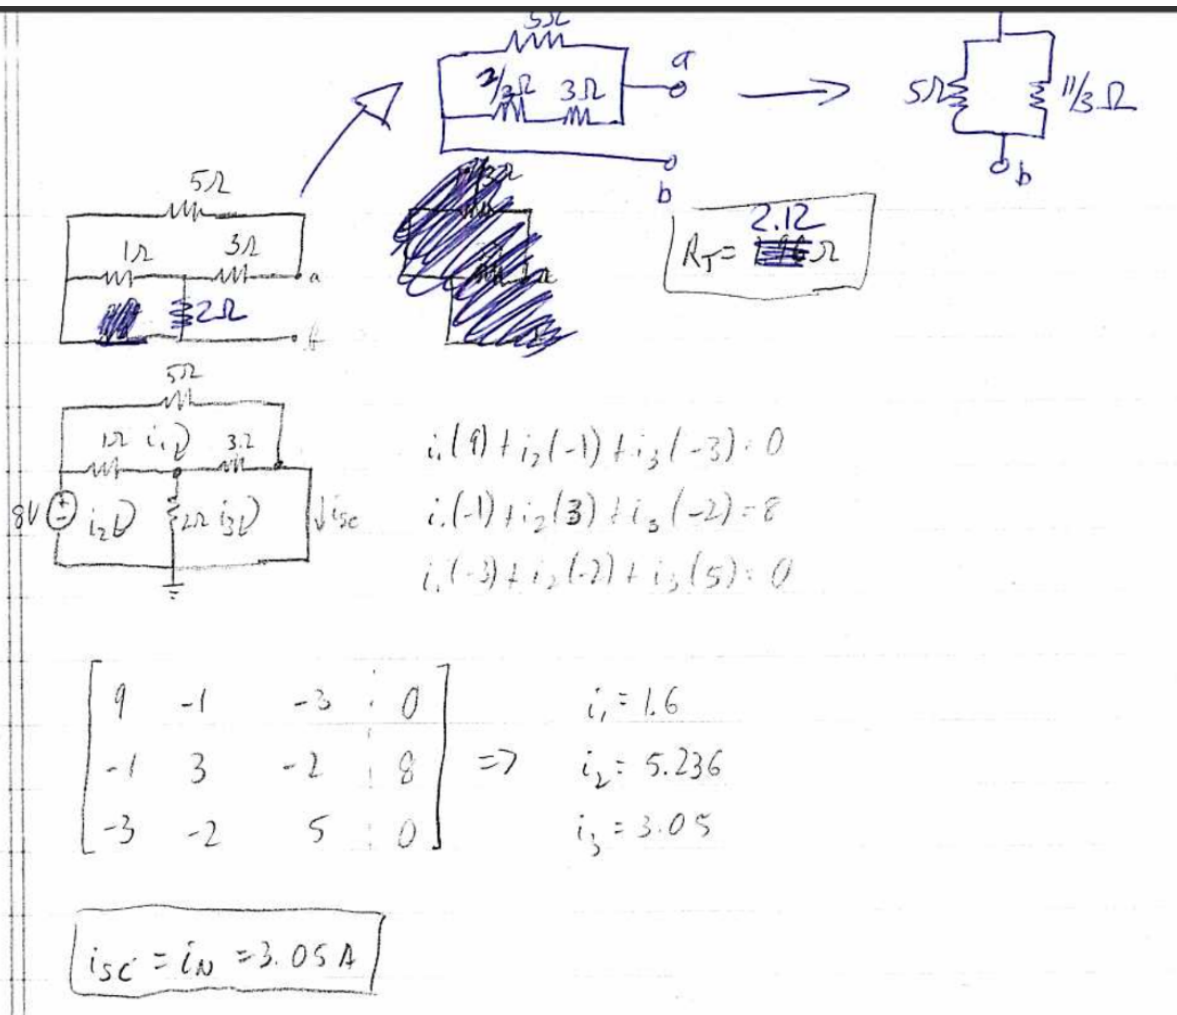 5Ω
2/3Ω 3Ω
a
b
5Ω 11/3Ω
b
5Ω
1Ω 3Ω
a
2Ω
R_T= 2.12 Ω
5Ω
1Ω i₁ 3Ω
8V i₂ 2Ω i₃ ↓isc
i₁(9)+i₂(-1)+i₃(-3)=0
i₁(-1)+i₂(3)+i₃(-2)=8
i₁(-3)+i₂(-2)+i₃(5)=0
9 -1 -3 0
-1 3 -2 8
-3 -2 5 0
=>
i₁=1.6
i₂=5.236
i₃=3.05
isc = iN = 3.05A